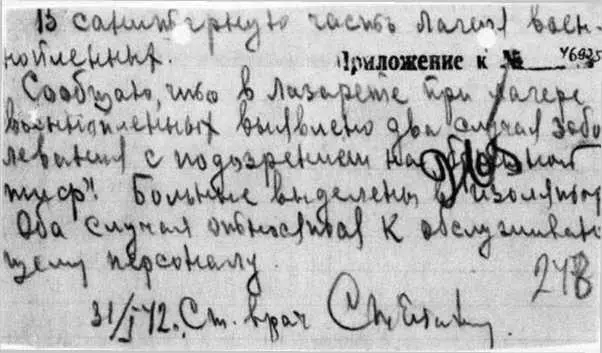 В санитарную часть лагеря воен-
нопленных.
Приложение к №
Сообщаю, что в лазарете при лагере
военнопленных выявлено два случая забо
левания с подозрением на брюшной
тиф". Больные выделены в изолятор
Оба случая относятся к обслуживаю
щему персоналу.
248
31/I 42. Ст. врач